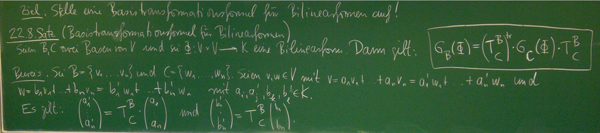 Ziel. Stelle eine Basistransformationsformel für Bilinearformen auf!
22.8 Satz (Basistransformationsformel für Bilinearformen)
Seien B, C zwei Basen von V und sei Φ: V × V → K eine Bilinearform. Dann gilt: G_B(Φ) = (T_C^B)^tr · G_C(Φ) · T_C^B
Beweis. Sei B = {v₁ … vₙ} und C = {w₁ … wₙ}. Seien v, w ∈ V mit v = a₁v₁ + … + aₙvₙ = a₁'w₁ + … + aₙ'wₙ und
w = b₁v₁ + … + bₙvₙ = b₁'w₁ + … + bₙ'wₙ mit ∈ K.
Es gilt: (a₁' ⋮ aₙ') = T_C^B (a₁ ⋮ aₙ) und (b₁' ⋮ bₙ') = T_C^B (b₁ ⋮ bₙ).